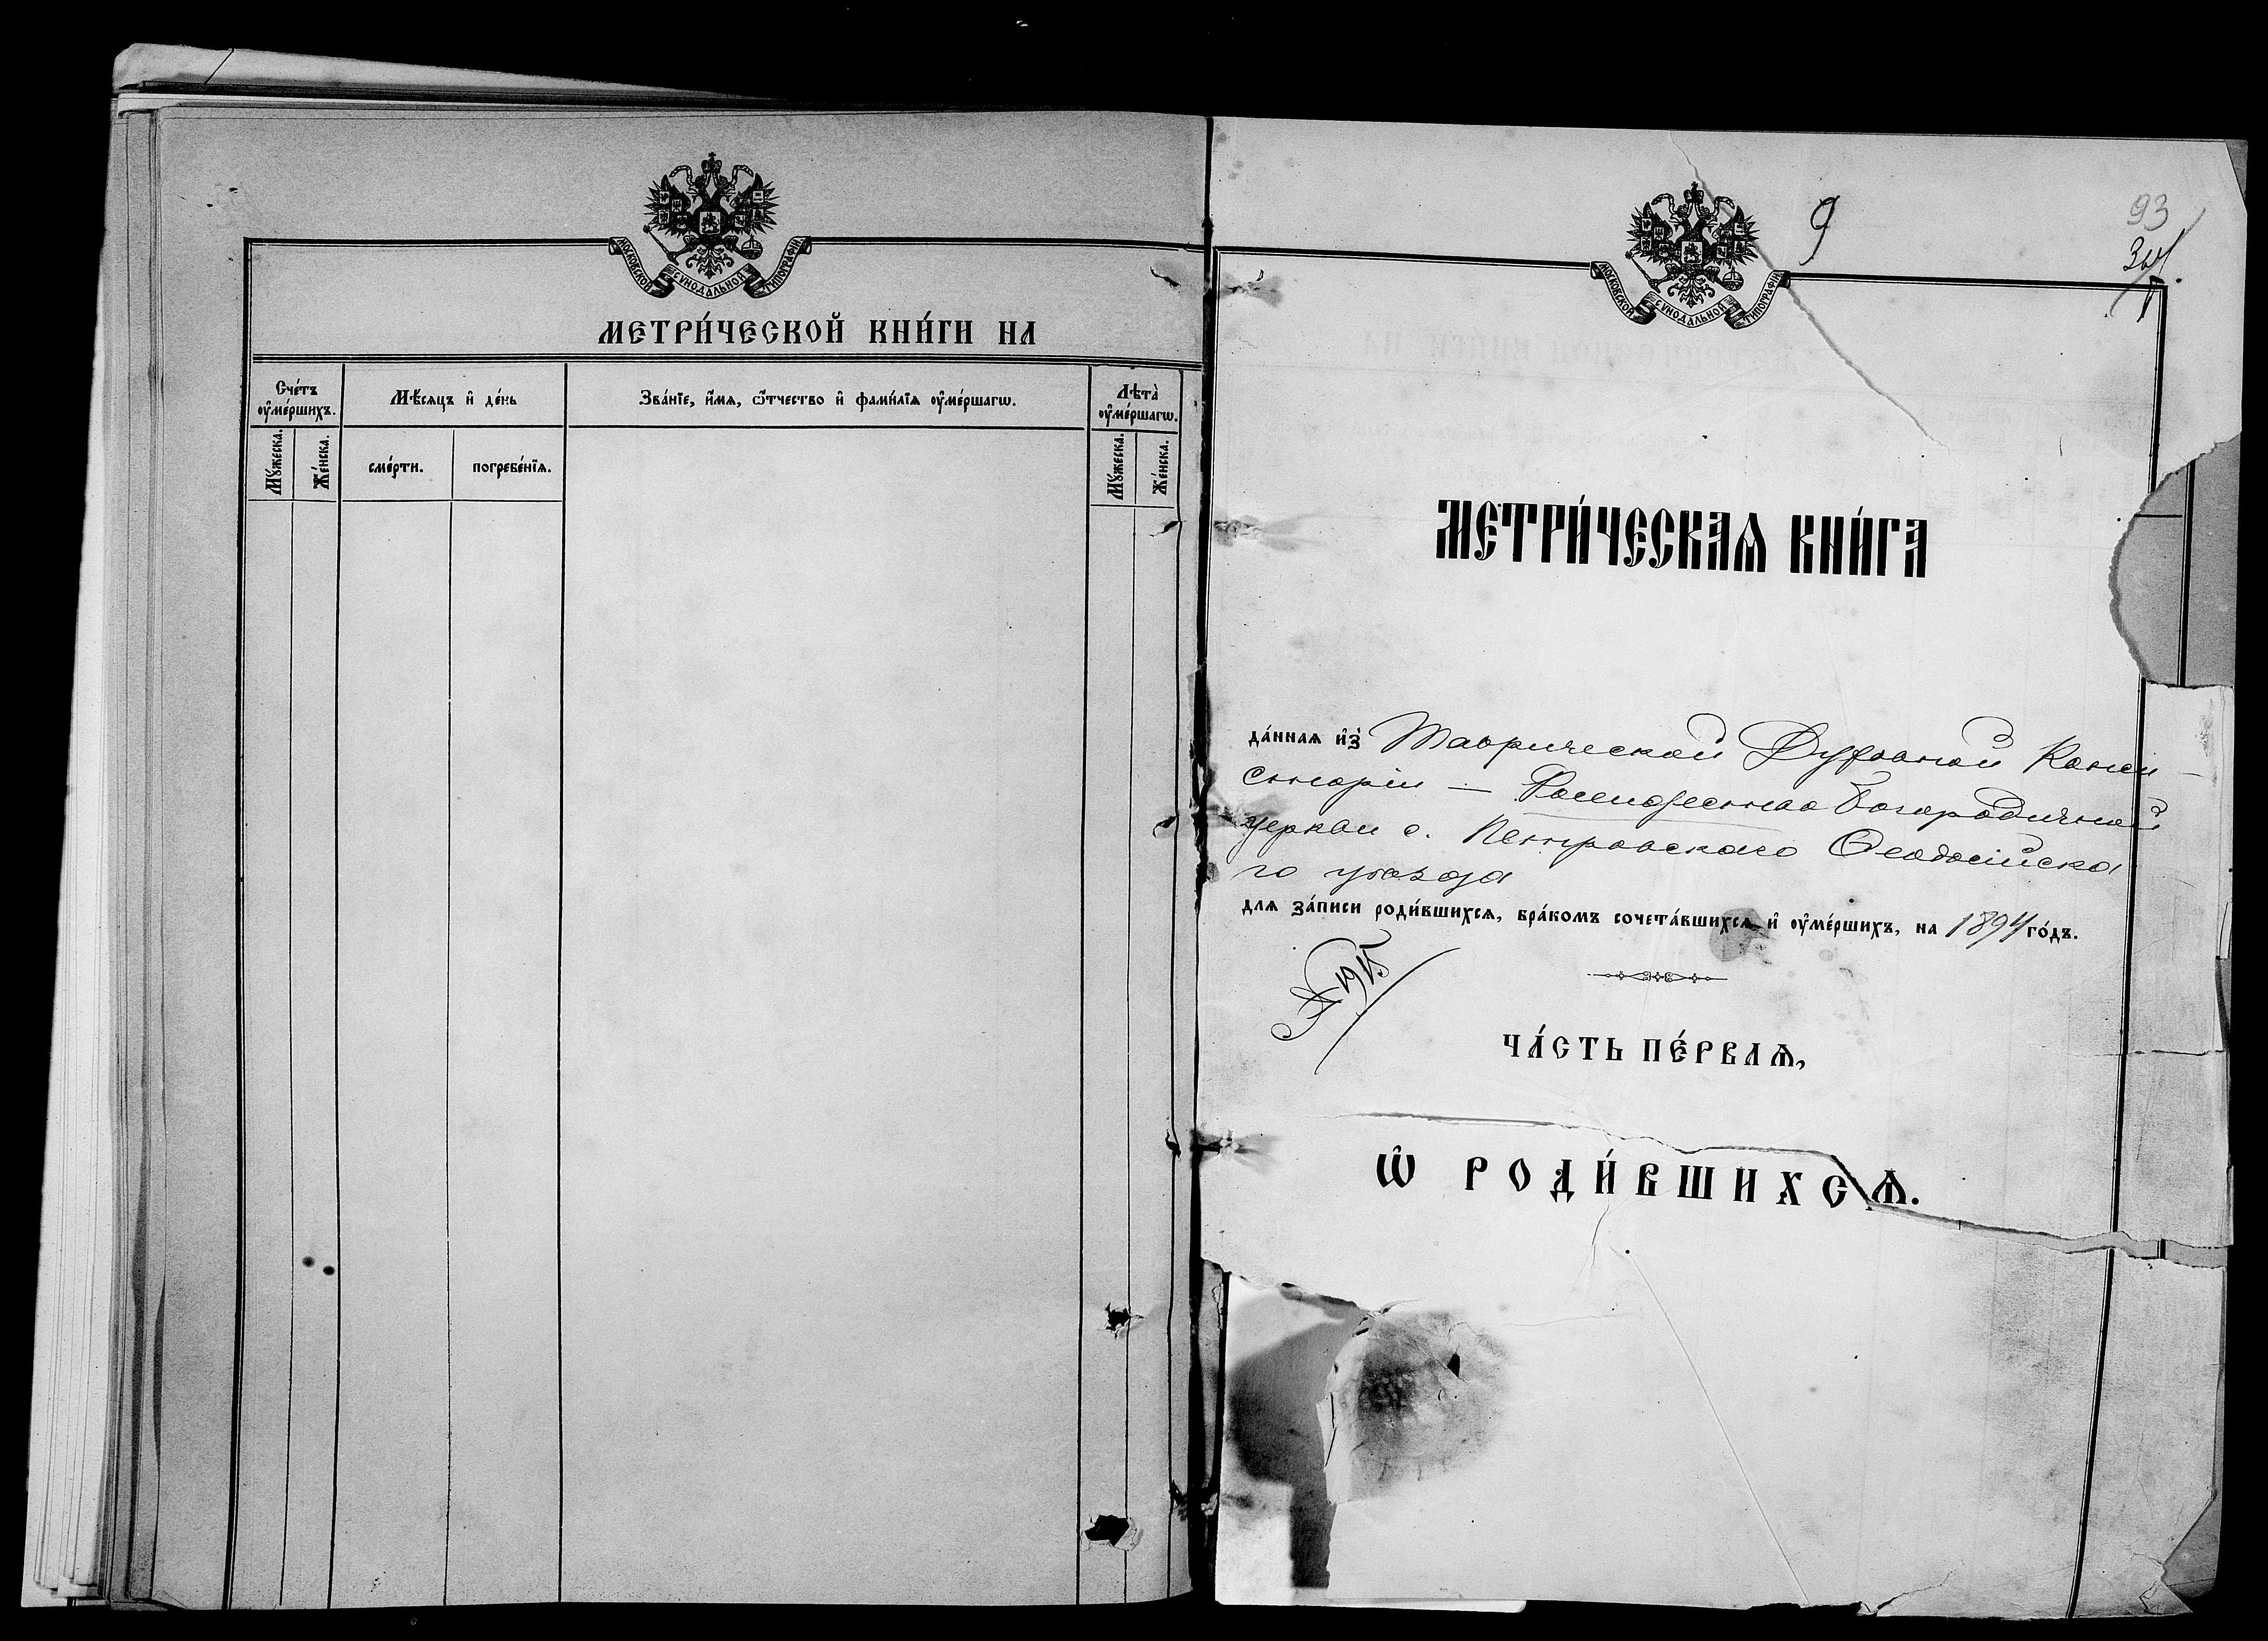 МОСКОВСКОЙ СѴНОДАЛЬНОЙ ТИПОГРАФІИ
МЕТРИ́ЧЕСКОЙ КНИ́ГИ НА
Сче́тъ ᲂу҆ме́ршихъ.
Мѣ́сяцъ и҆ де́нь
Зва́нїе, и҆́мѧ, ѻ҆́тчество и҆ фами́лїѧ ᲂу҆ме́ршагѡ.
Лѣта̀ ᲂу҆ме́ршагѡ.
Мꙋ́жеска.
Же́нска.
сме́рти.
погребе́нїѧ.
Мꙋ́жеска.
Же́нска.
9
93
МОСКОВСКОЙ СѴНОДАЛЬНОЙ ТИПОГРАФІИ
МЕТРИ́ЧЕСКАѦ КНИ́ГА
да́ннаѧ и҆з̾ Таврической Духовной Конси-
сторіи — Рождество Богородичной
церкви с. Петровскаго Ѳеодосійска
го уѣзда
длѧ за́писи роди́вшихсѧ, бра́комъ сочета́вшихсѧ и҆ ᲂу҆ме́ршихъ, на 1894 го́дъ.
№ 1915
ЧА́СТЬ ПЕ́РВАѦ,
Ѡ҆ РОДИ́ВШИХСѦ.